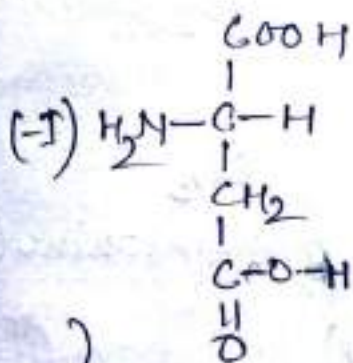 COOH
(-I) H2N-C-H
CH2
C-O-H
O
)